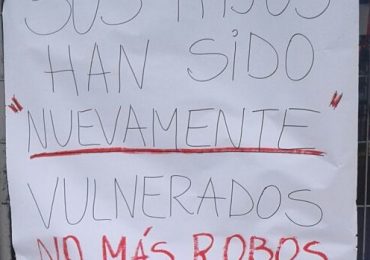 SUS HIJOS
HAN SIDO
"NUEVAMENTE"
VULNERADOS
NO MÁS ROBOS